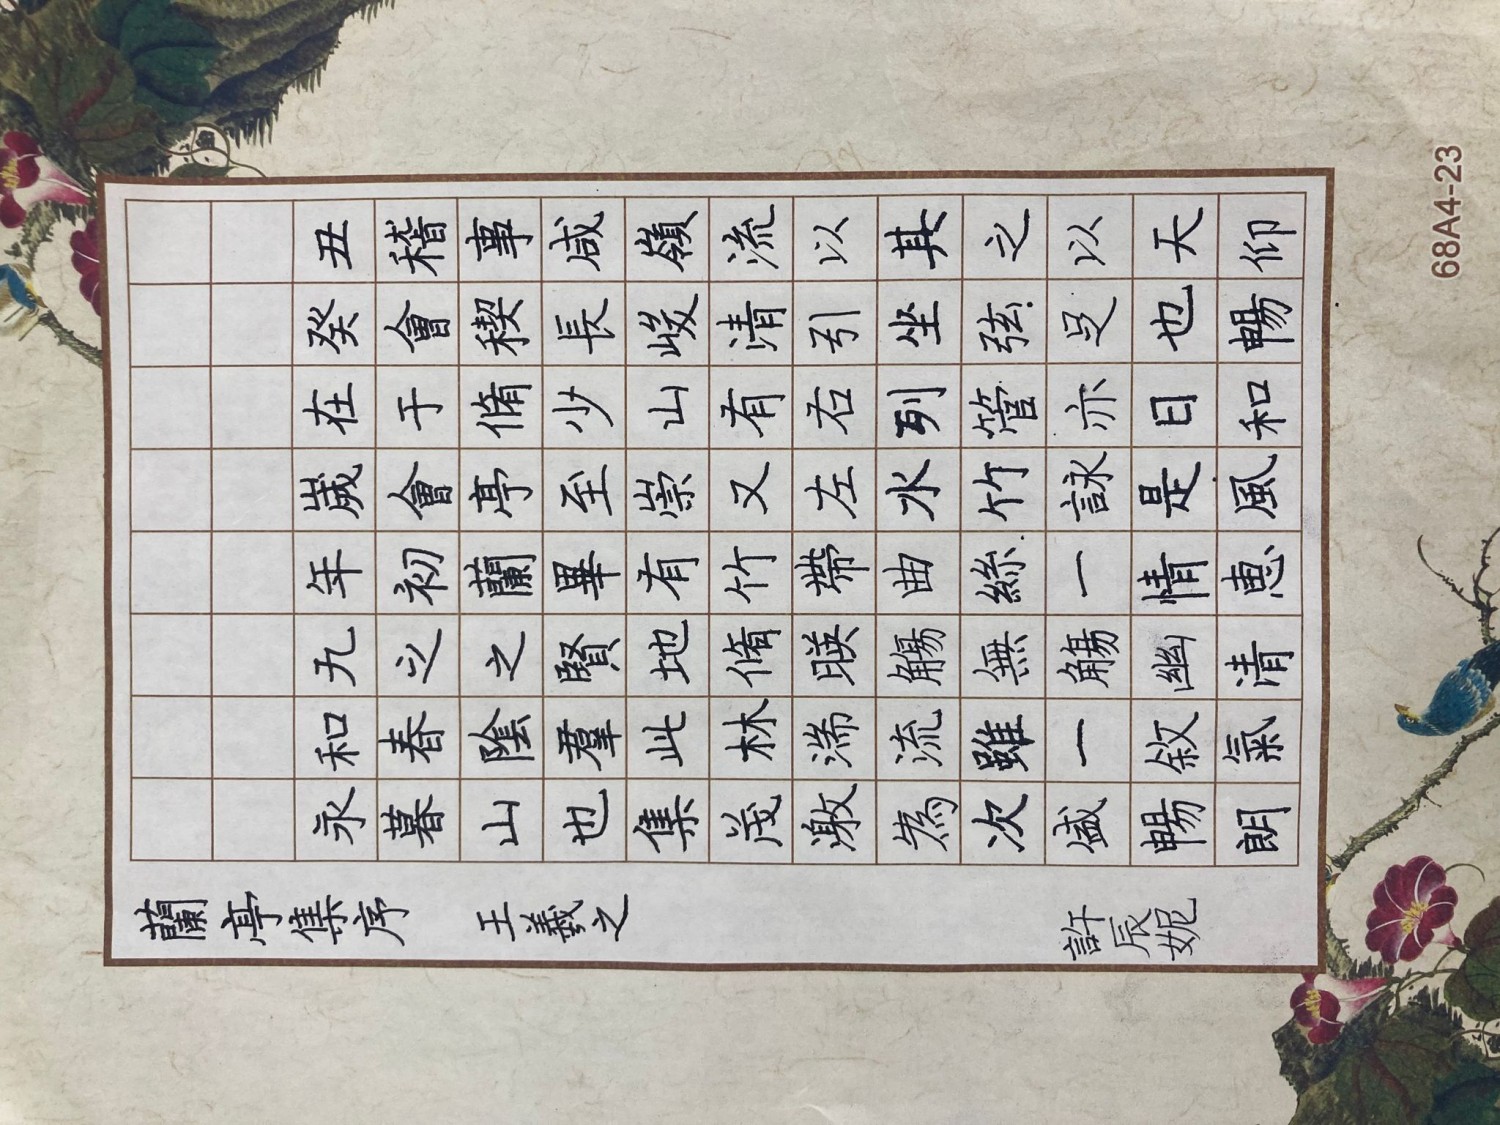 蘭亭集序 王羲之
永和九年歲在癸丑
暮春之初會于會稽
山陰之蘭亭脩稧事
也羣賢畢至少長咸
集此地有崇山峻嶺
茂林脩竹又有清流
激湍暎帶左右引以
為流觴曲水列坐其
次雖無絲竹管弦之
盛一觴一詠亦足以
暢敘幽情是日也天
朗氣清恵風和暢仰
許辰妮
68A4-23